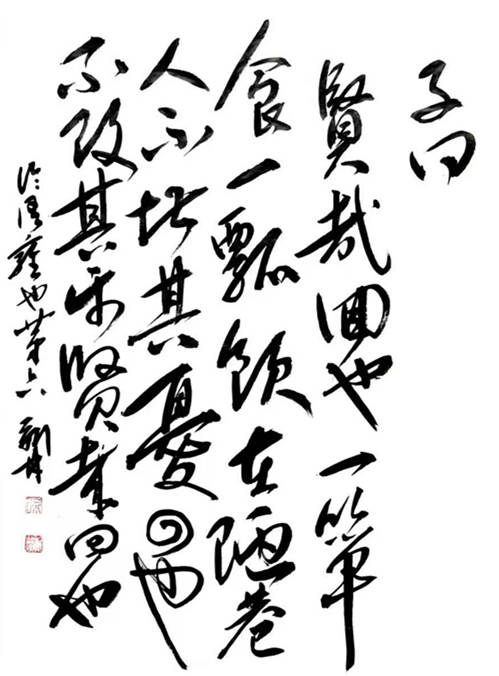 子曰
賢哉回也一簞
食一瓢飲在陋巷
人不堪其憂回也
不改其樂賢哉回也
論語雍也第六